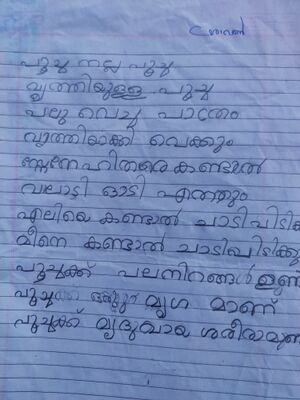 പൂച്ച നല്ല പൂച്ച
വൃത്തിയുള്ള പൂച്ച
പാലു വെച്ച പാത്രം
വൃത്തിയാക്കി വെക്കും
സ്നേഹിതരെ കണ്ടാൽ
വാലാട്ടി ഓടി എത്തും
എലിയെ കണ്ടാൽ ചാടി പിടിക്
മീനെ കണ്ടാൽ ചാടി പിടിക്കു
പൂച്ചക്ക് പല നിറങ്ങൾ ഉണ്ട
പൂച്ചക്ക് മൃഗ മാണ്
പൂച്ചക്ക് മൃദുവായ ശരീരാമുണ